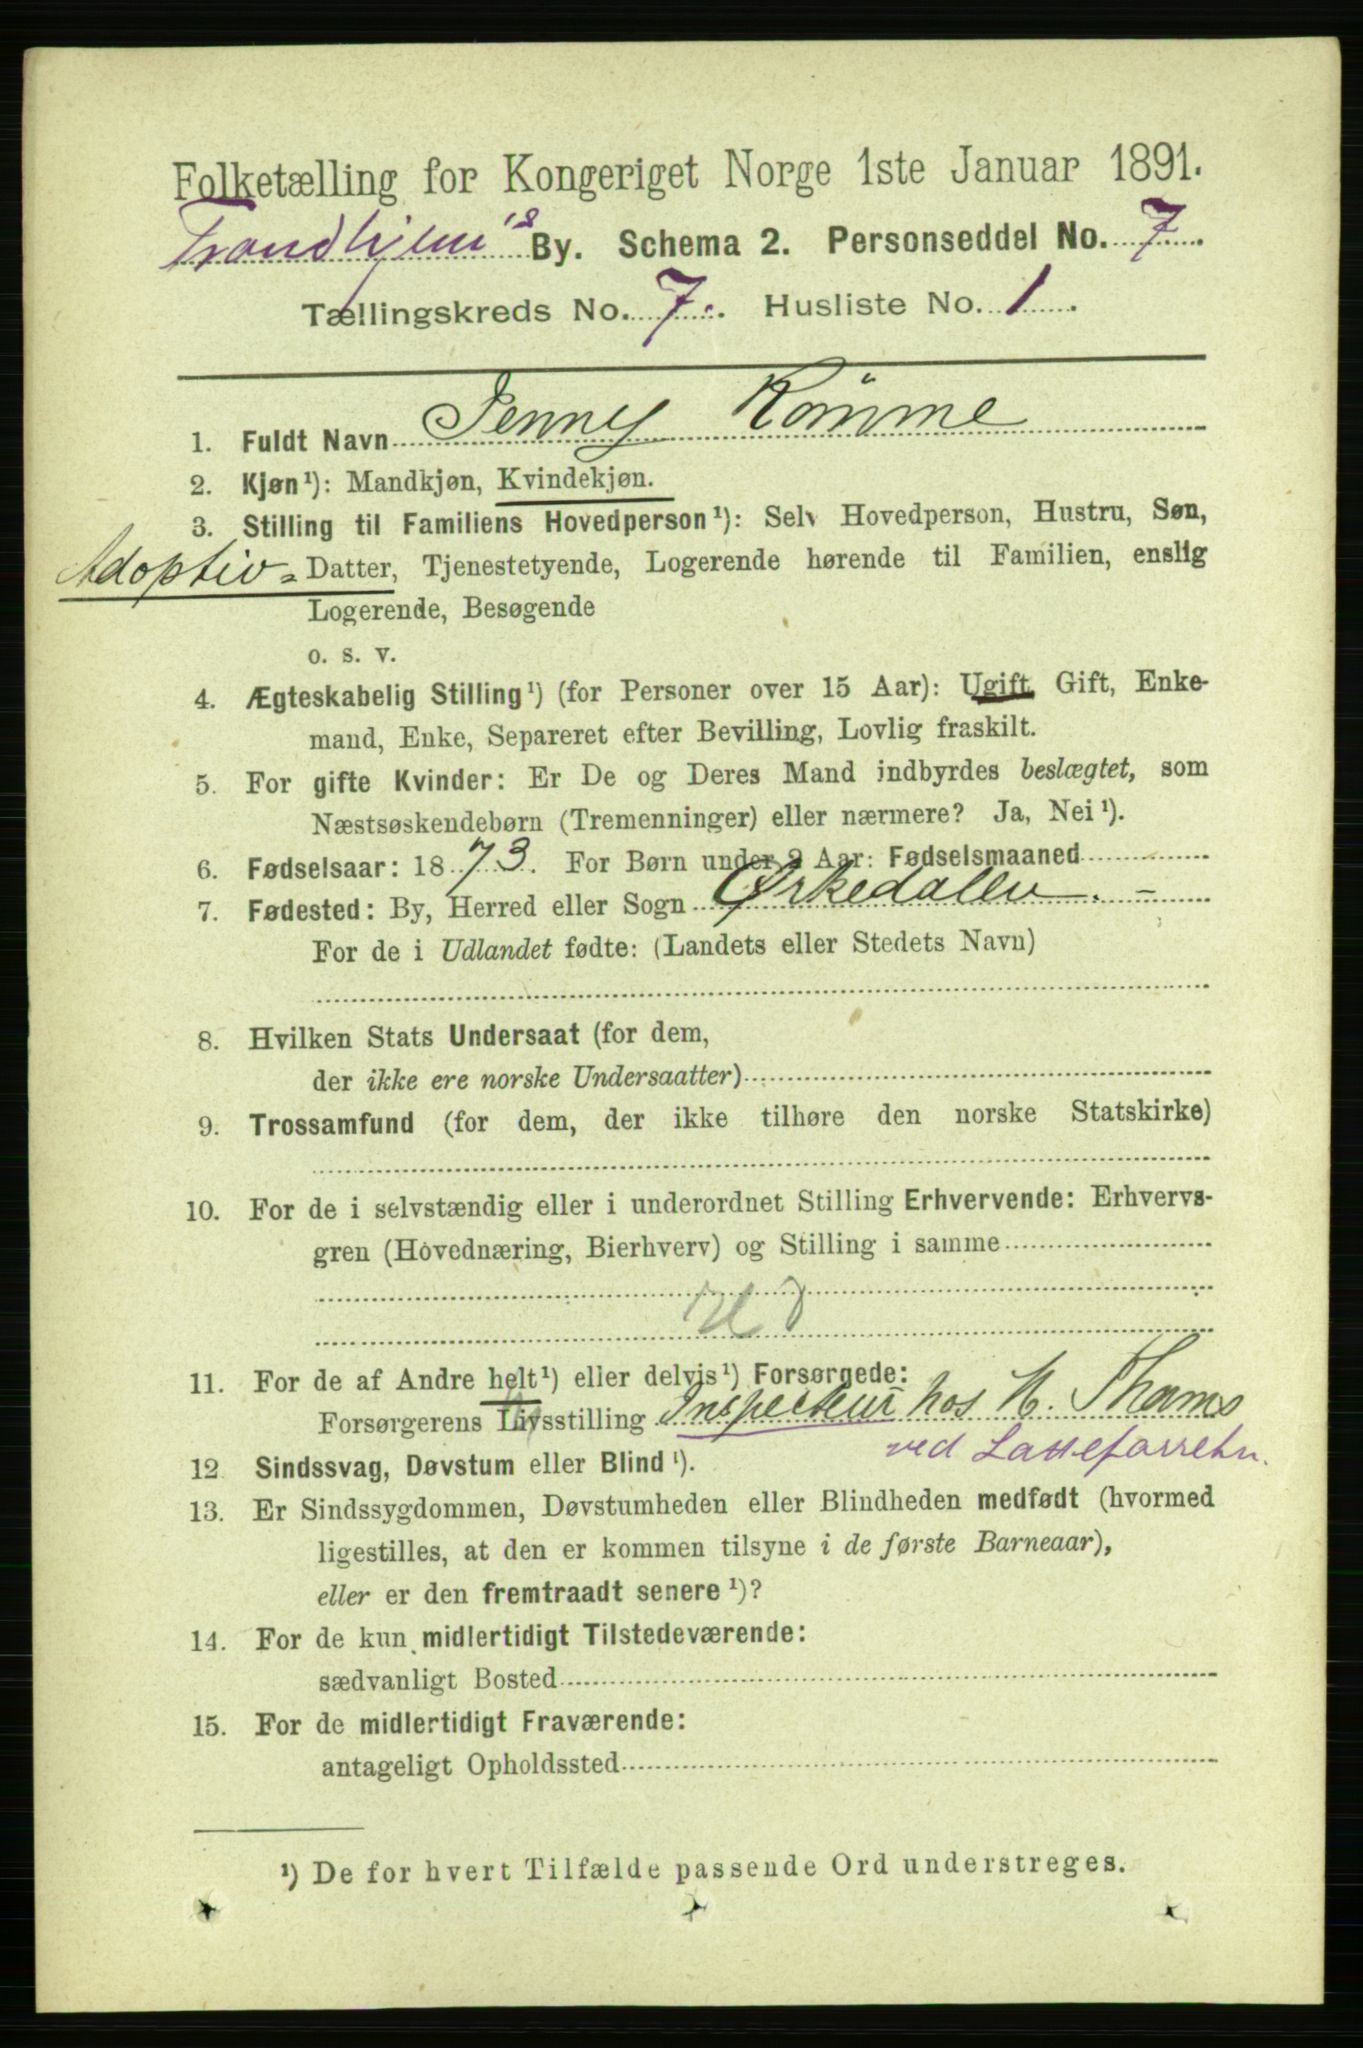 Folketælling for Kongeriget Norge 1ste Januar 1891.
Trondhjem's By. Schema 2. Personseddel No. 7.
Tællingskreds No. 7. Husliste No. 1.
1. Fuldt Navn Jenny Rømme
2. Kjøn¹): Mandkjøn, Kvindekjøn.
3. Stilling til Familiens Hovedperson¹): Selv Hovedperson, Hustru, Søn,
Adoptiv- Datter, Tjenestetyende, Logerende hørende til Familien, enslig
Logerende, Besøgende
o. s. v.
4. Ægteskabelig Stilling¹) (for Personer over 15 Aar): Ugift, Gift, Enke-
mand, Enke, Separeret efter Bevilling, Lovlig fraskilt.
5. For gifte Kvinder: Er De og Deres Mand indbyrdes beslægtet, som
Næstsøskendebørn (Tremenninger) eller nærmere? Ja, Nei¹).
6. Fødselsaar: 1873. For Børn under 2 Aar: Fødselsmaaned
7. Fødested: By, Herred eller Sogn Ørkedalen. -
For de i Udlandet fødte: (Landets eller Stedets Navn)
8. Hvilken Stats Undersaat (for dem,
der ikke ere norske Undersaatter)
9. Trossamfund (for dem, der ikke tilhøre den norske Statskirke)
10. For de i selvstændig eller i underordnet Stilling Erhvervende: Erhvervs-
gren (Hovednæring, Bierhverv) og Stilling i samme
11. For de af Andre helt¹) eller delvis¹) Forsørgede:
Forsørgerens Livsstilling Inspecteur hos M. Thams
ved
12 Sindssvag, Døvstum eller Blind¹).
13. Er Sindssygdommen, Døvstumheden eller Blindheden medfødt (hvormed
ligestilles, at den er kommen tilsyne i de første Barneaar),
eller er den fremtraadt senere¹)?
14. For de kun midlertidigt Tilstedeværende:
sædvanligt Bosted
15. For de midlertidigt Fraværende:
antageligt Opholdssted
¹) De for hvert Tilfælde passende Ord understreges.